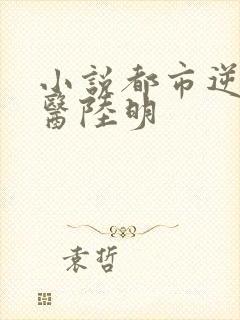 小説都市逆
醫陸明
袁哲